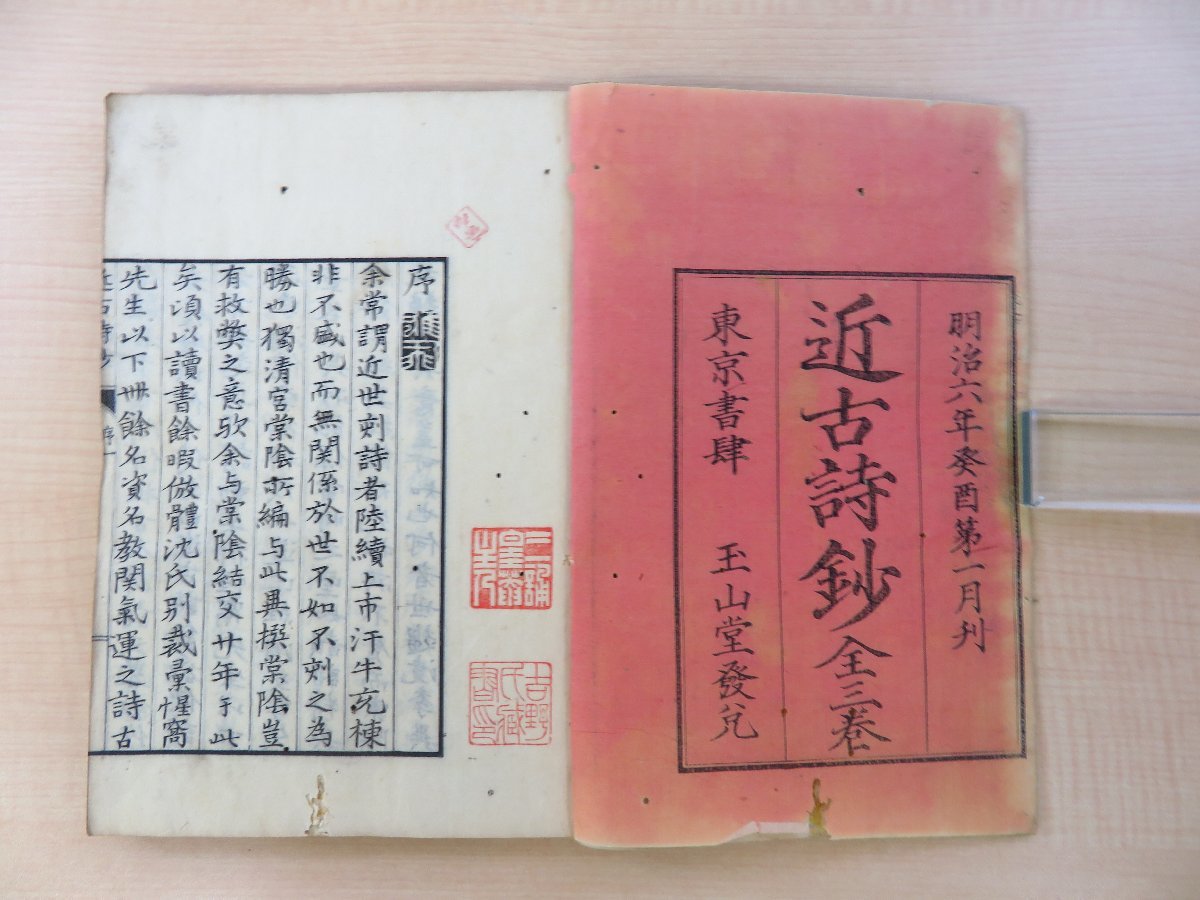 明治六年癸酉第一月刋
近古詩鈔全三巻
東京書肆 玉山堂發兌
序
余常謂近世刻詩者陸續上市汗牛充棟
非不盛也而無関係於世不如不刻之為
勝也獨清宮棠陰所編与此異撰棠陰豈
有救弊之意欤余与棠陰結交廿年于此
矣頃以讀書餘暇倣體沈氏別裁彙惺窩
先生以下卌餘名資名教関氣運之詩古
近古詩鈔 序一
吉野氏藏書印